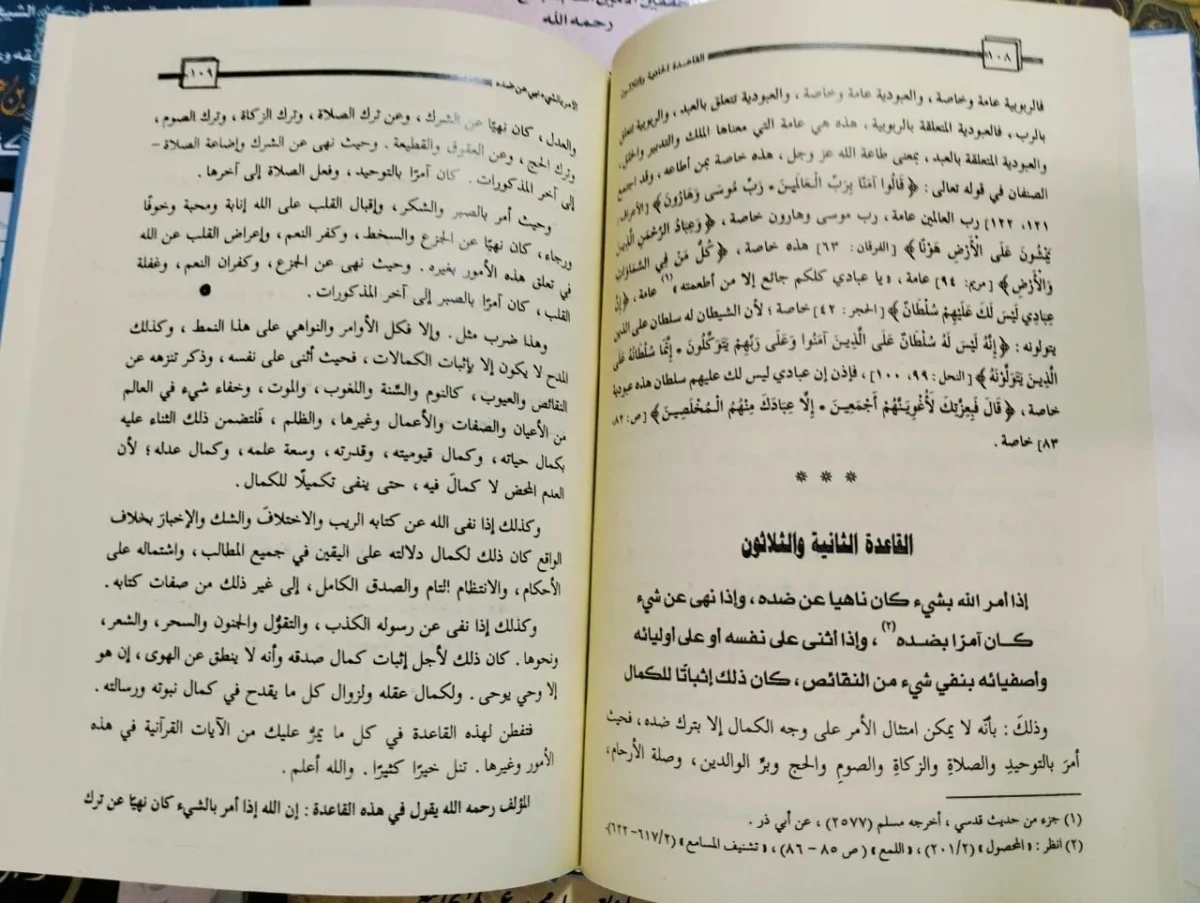 رحمه الله
١٠٨
القاعدة الحادية والثلاثون
فالربوبية عامة وخاصة ، والعبودية عامة وخاصة ، والعبودية تتعلق بالعبد ، والربوبية تتعلق
بالرب ، فالعبودية المتعلقة بالربوبية ، هذه هي عامة التي معناها الملك والتدبير والخلق.
والعبودية المتعلقة بالعبد، بمعنى طاعة الله عز وجل ، هذه خاصة بمن أطاعه ، وقد اجتمع
الصنفان في قوله تعالى : ﴿ قَالُوا آمَنَّا بِرَبِّ الْعَالَمِينَ * رَبِّ مُوسَى وَهَارُونَ ﴾ [الأعراف:
١٢١، ١٢٢] رب العالمين عامة، رب موسى وهارون خاصة ، ﴿ وَعِبَادُ الرَّحْمَنِ الَّذِينَ
يَمْشُونَ عَلَى الْأَرْضِ هَوْنًا ﴾ [الفرقان : ٦٣] هذه خاصة ، ﴿ كُلُّ مَنْ فِي السَّمَاوَاتِ
وَالْأَرْضِ ﴾ [مريم: ٩٤] عامة ، «يا عبادي كلكم جائع إلا من أطعمته»(١) عامة ، ﴿إِنَّ
عِبَادِي لَيْسَ لَكَ عَلَيْهِمْ سُلْطَانٌ ﴾ [الحجر : ٤٢] خاصة ؛ لأن الشيطان له سلطان على الذين
يتولونه : ﴿ إِنَّهُ لَيْسَ لَهُ سُلْطَانٌ عَلَى الَّذِينَ آمَنُوا وَعَلَى رَبِّهِمْ يَتَوَكَّلُونَ * إِنَّمَا سُلْطَانُهُ عَلَى
الَّذِينَ يَتَوَلَّوْنَهُ ﴾ [النحل : ٩٩، ١٠٠] ، فإذن إن عبادي ليس لك عليهم سلطان هذه عبودية
خاصة ، ﴿ قَالَ فَبِعِزَّتِكَ لَأُغْوِيَنَّهُمْ أَجْمَعِينَ * إِلَّا عِبَادَكَ مِنْهُمُ الْمُخْلَصِينَ ﴾ [ص: ٨٢،
٨٣] خاصة .
* * *
القاعدة الثانية والثلاثون
إذا أمر الله بشيء كان ناهيا عن ضده ، وإذا نهى عن شيء
كان آمرًا بضده(٢) ، وإذا أثنى على نفسه أو على أوليائه
وأصفيائه بنفي شيء من النقائص ، كان ذلك إثباتًا للكمال
وذلكَ : بأنّه لا يمكن امتثال الأمر على وجه الكمال إلا بترك ضده ، فحيث
أمرَ بالتوحيدِ والصلاةِ والزكاةِ والصومِ والحج وبرِّ الوالدين، وصلة الأرحام،
(١) جزء من حديث قدسي ، أخرجه مسلم (٢٥٧٧) ، عن أبي ذر .
(٢) انظر : «المحصول» (٢٠١/٢) ، «اللمع» (ص ٨٥ – ٨٦) ، «تشنيف المسامع» (٦١٧/٢– ٦٢٢).
الأمر بالشيء نهي عن ضده
١٠٩
والعدل ، كان نهيًا عن الشرك ، وعن ترك الصلاة ، وترك الزكاة ، وترك الصوم ،
وترك الحج ، وعن العقوق والقطيعة . وحيث نهى عن الشرك وإضاعة الصلاة –
إلى آخر المذكورات . كان آمرًا بالتوحيد ، وفعل الصلاة إلى آخرها .
وحيث أمر بالصبر والشكر ، وإقبال القلب على الله إنابة ومحبة وخوفًا
ورجاء، كان نهيًا عن الجزع والسخط، وكفر النعم، وإعراض القلب عن الله
في تعلق هذه الأمور بغيره . وحيث نهى عن الجزع، وكفران النعم، وغفلة
القلب، كان آمرًا بالصبر إلى آخر المذكورات .
وهذا ضرب مثل . وإلا فكل الأوامر والنواهي على هذا النمط ، وكذلك
المدح لا يكون إلا بإثبات الكمالات ، فحيث أثنى على نفسه، وذكر تنزهه عن
النقائص والعيوب ، كالنوم والسِّنة واللغوب ، والموت ، وخفاء شيء في العالم
من الأعيان والصفات والأعمال وغيرها ، والظلم ، فلتضمن ذلك الثناء عليه
بكمال حياته ، وكمال قيوميته ، وقدرته ، وسعة علمه ، وكمال عدله ؛ لأن
العدم المحض لا كمالَ فيه ، حتى ينفى تكميلًا للكمال .
وكذلك إذا نفى الله عن كتابه الريب والاختلافَ والشك والإخبارَ بخلاف
الواقع كان ذلك لكمال دلالته على اليقين في جميع المطالب، واشتماله على
الأحكام، والانتظام التام والصدق الكامل ، إلى غير ذلك من صفات كتابه .
وكذلك إذا نفى عن رسوله الكذب ، والتقوُّل والجنون والسحر، والشعر،
ونحوها . كان ذلك لأجل إثبات كمال صدقه وأنه لا ينطق عن الهوى، إن هو
إلا وحي يوحى . ولكمال عقله ولزوال كل ما يقدح في كمال نبوته ورسالته .
فتفطن لهذه القاعدة في كل ما يمرُّ عليك من الآيات القرآنية في هذه
الأمور وغيرها . تنل خيرًا كثيرًا . والله أعلم .
المؤلف رحمه الله يقول في هذه القاعدة : إن الله إذا أمر بالشيء كان نهيًا عن ترك